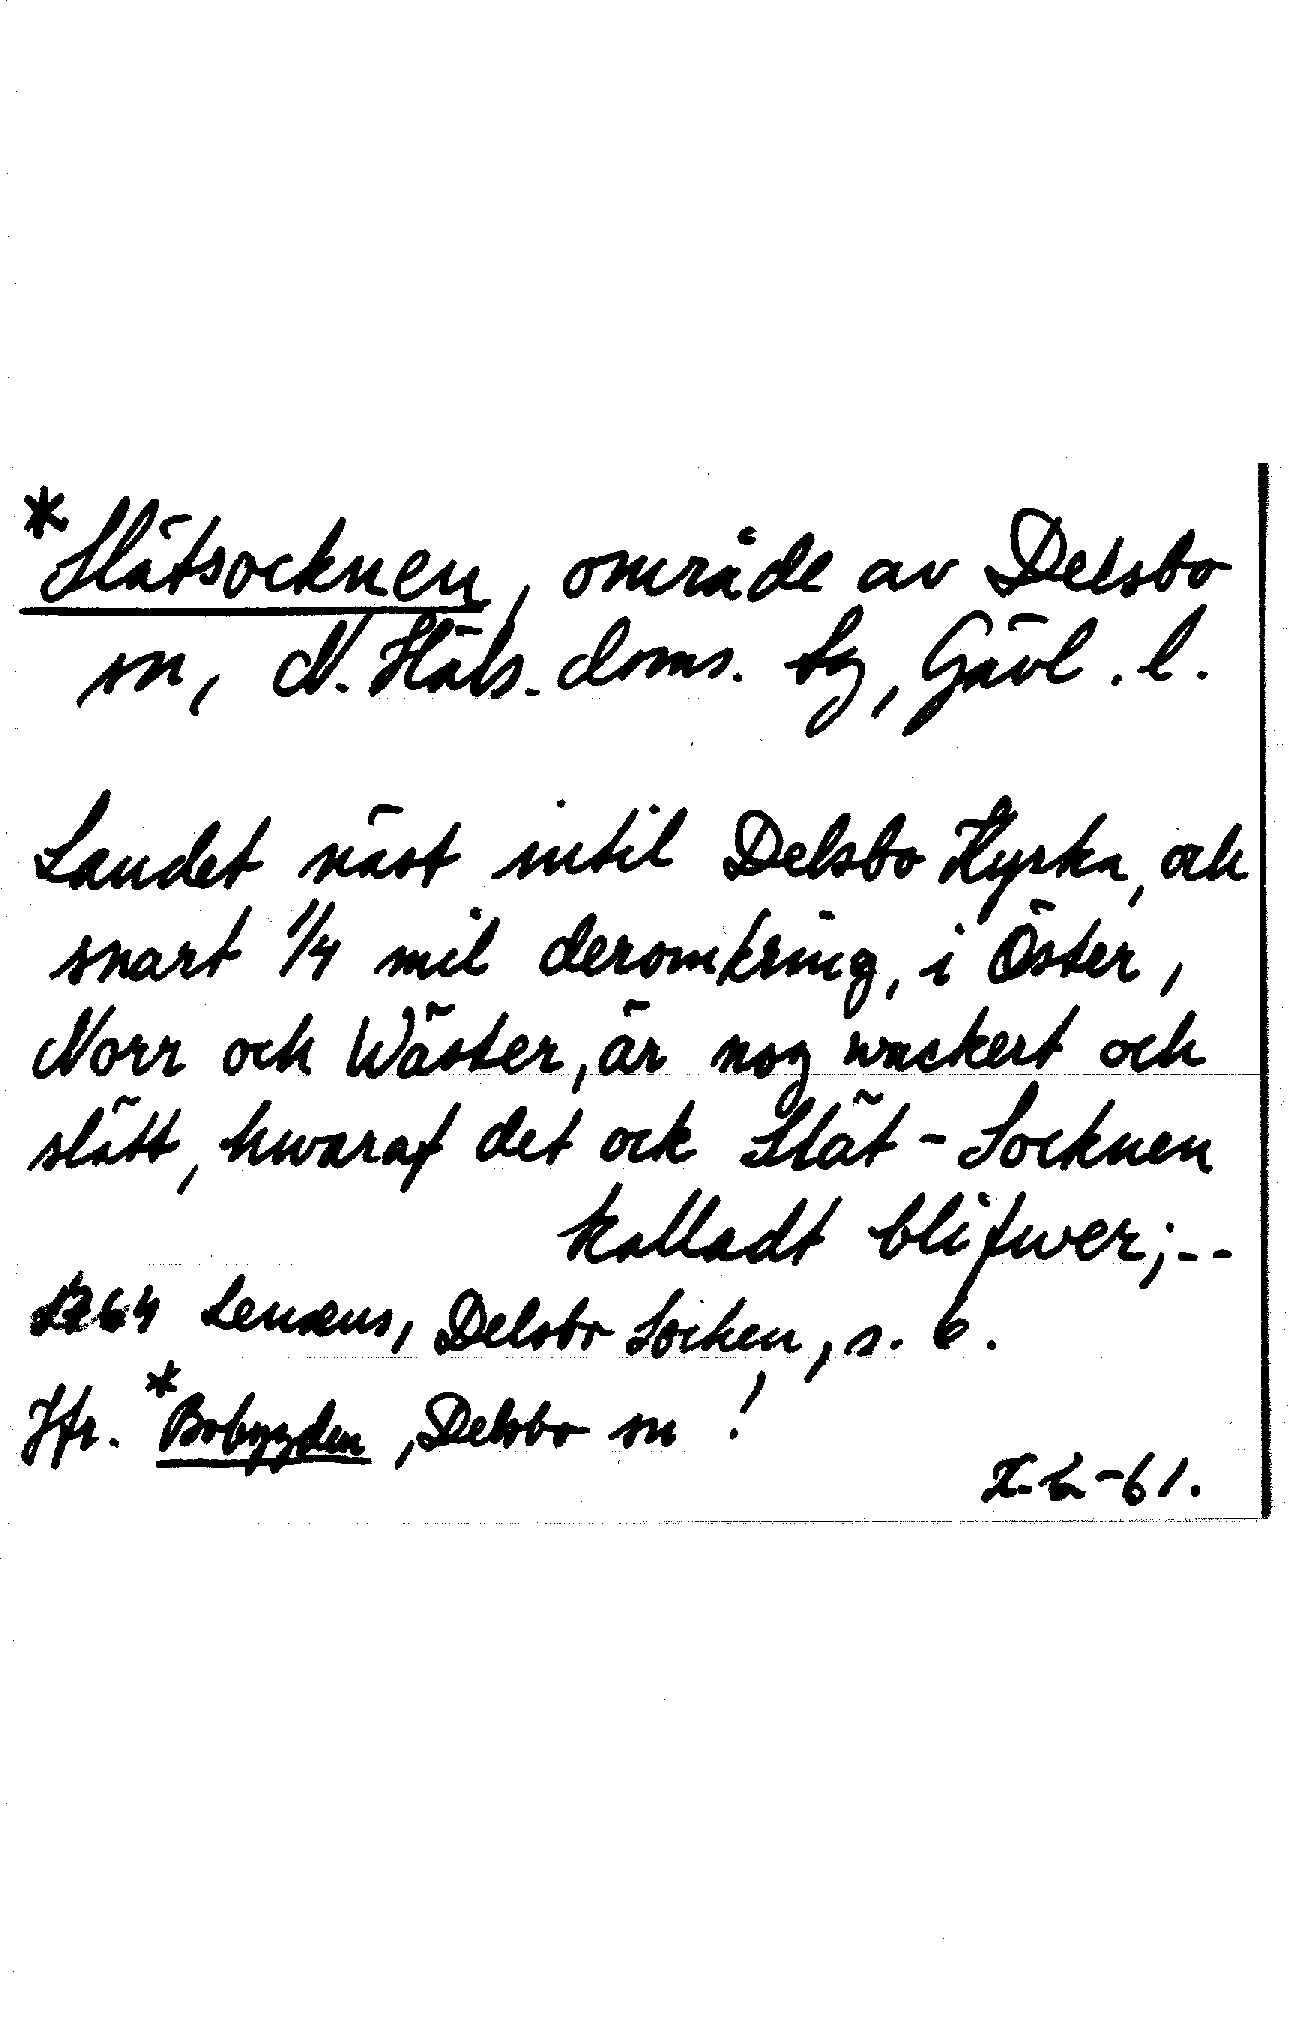 *Slätsocknen, område av Delsbo
sn, N. Häls. doms. tg, Gävl. l.
Landet näst intil Delsbo Kyrka, och
snart 1/4 mil deromkring, i Öster,
Norr och Wäster, är nog wackert och
slätt, hwaraf det ock Slät-Socknen
kalladt blifwer;--
1764 Lenæus, Delsbo Socken, s. 6.
Jfr. *Bobygden, Delsbo sn!
-61.